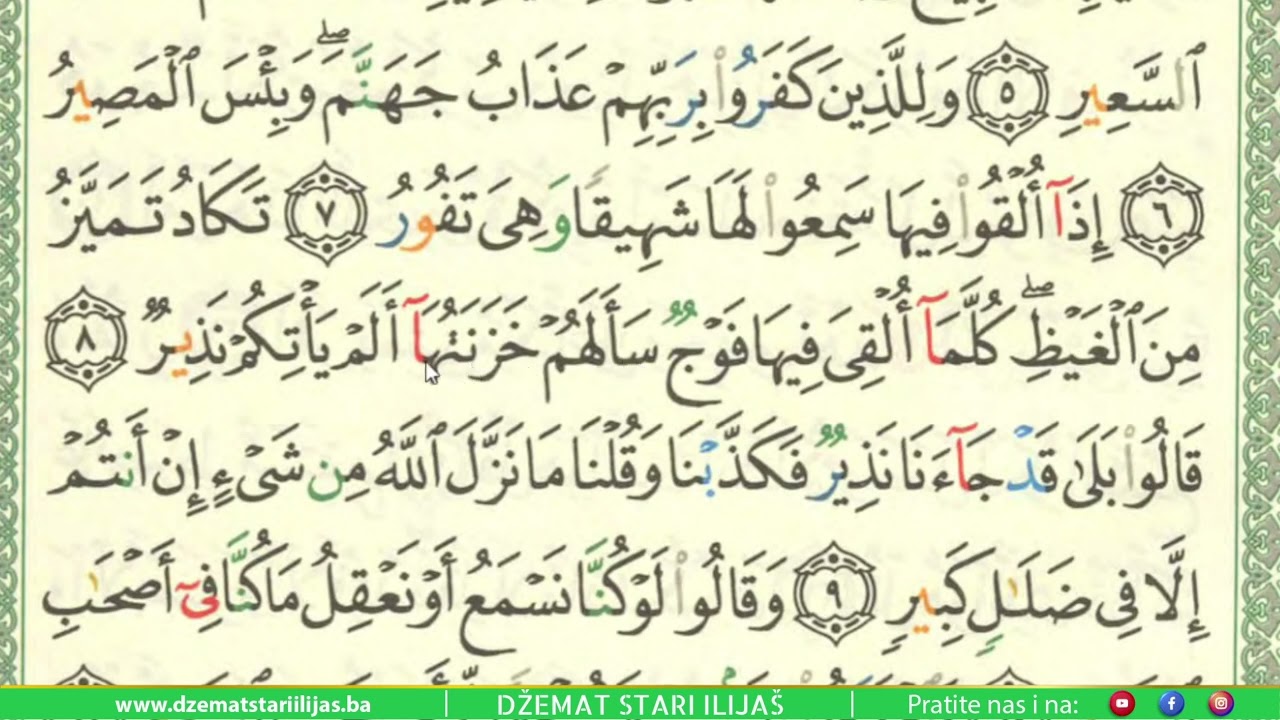 ٱلسَّعِيرِ ٥ وَلِلَّذِينَ كَفَرُوا۟ بِرَبِّهِمْ عَذَابُ جَهَنَّمَ ۖ وَبِئْسَ ٱلْمَصِيرُ
٦ إِذَآ أُلْقُوا۟ فِيهَا سَمِعُوا۟ لَهَا شَهِيقًا وَهِىَ تَفُورُ ٧ تَكَادُ تَمَيَّزُ
مِنَ ٱلْغَيْظِ ۖ كُلَّمَآ أُلْقِىَ فِيهَا فَوْجٌ سَأَلَهُمْ خَزَنَتُهَآ أَلَمْ يَأْتِكُمْ نَذِيرٌ ٨
قَالُوا۟ بَلَىٰ قَدْ جَآءَنَا نَذِيرٌ فَكَذَّبْنَا وَقُلْنَا مَا نَزَّلَ ٱللَّهُ مِن شَىْءٍ إِنْ أَنتُمْ
إِلَّا فِى ضَلَـٰلٍ كَبِيرٍ ٩ وَقَالُوا۟ لَوْ كُنَّا نَسْمَعُ أَوْ نَعْقِلُ مَا كُنَّا فِىٓ أَصْحَـٰبِ
www.dzematstariilijas.ba DŽEMAT STARI ILIJAŠ Pratite nas i na: